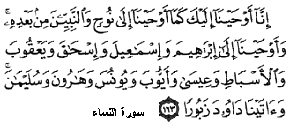 إِنَّا أَوْحَيْنَا إِلَيْكَ كَمَا أَوْحَيْنَا إِلَىٰ نُوحٍ وَالنَّبِيِّينَ مِنْ بَعْدِهِ ۚ
وَأَوْحَيْنَا إِلَىٰ إِبْرَاهِيمَ وَإِسْمَاعِيلَ وَإِسْحَاقَ وَيَعْقُوبَ
وَالْأَسْبَاطِ وَعِيسَىٰ وَأَيُّوبَ وَيُونُسَ وَهَارُونَ وَسُلَيْمَانَ ۚ
وَءَاتَيْنَا دَاوُودَ زَبُورًا ١٦٣ سورة النساء